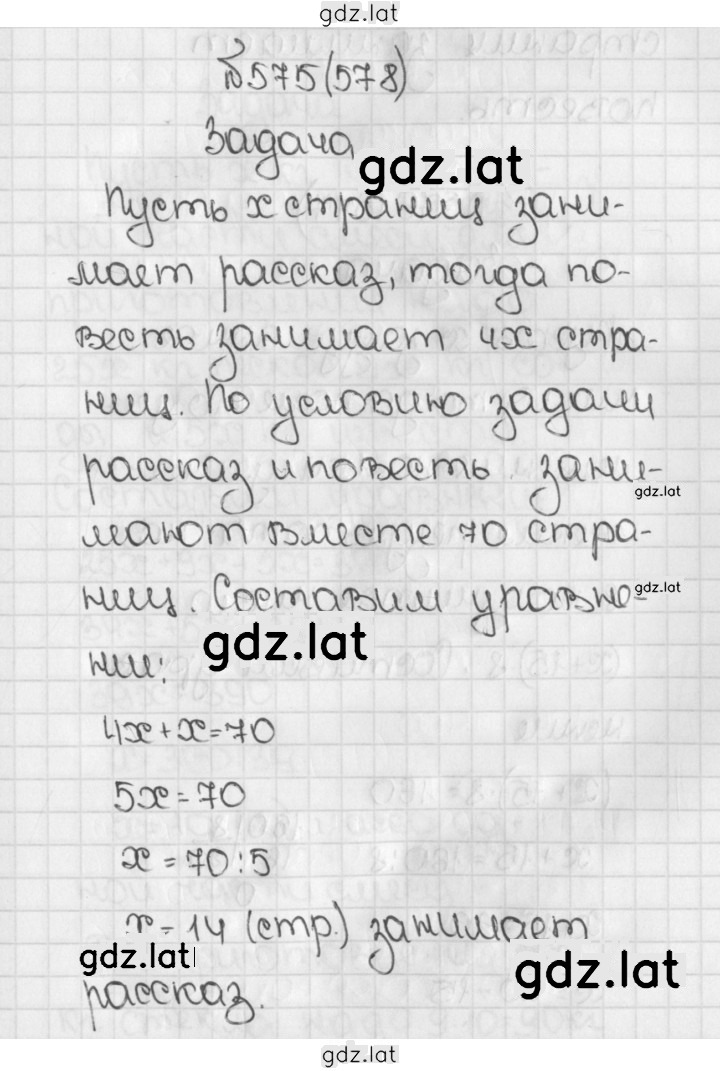 gdz.lat
№575(578)
Задача
gdz.lat
Пусть x страниц зани-
мает рассказ, тогда по-
весть занимает 4x стра-
ниц. По условию задачи
рассказ и повесть зани-
gdz.lat
мают вместе 70 стра-
ниц. Составим уравне-
gdz.lat
gdz.lat
нии:
4x+x=70
5x=70
x=70:5
x=14 (стр.) занимает
gdz.lat
gdz.lat
рассказ.
gdz.lat